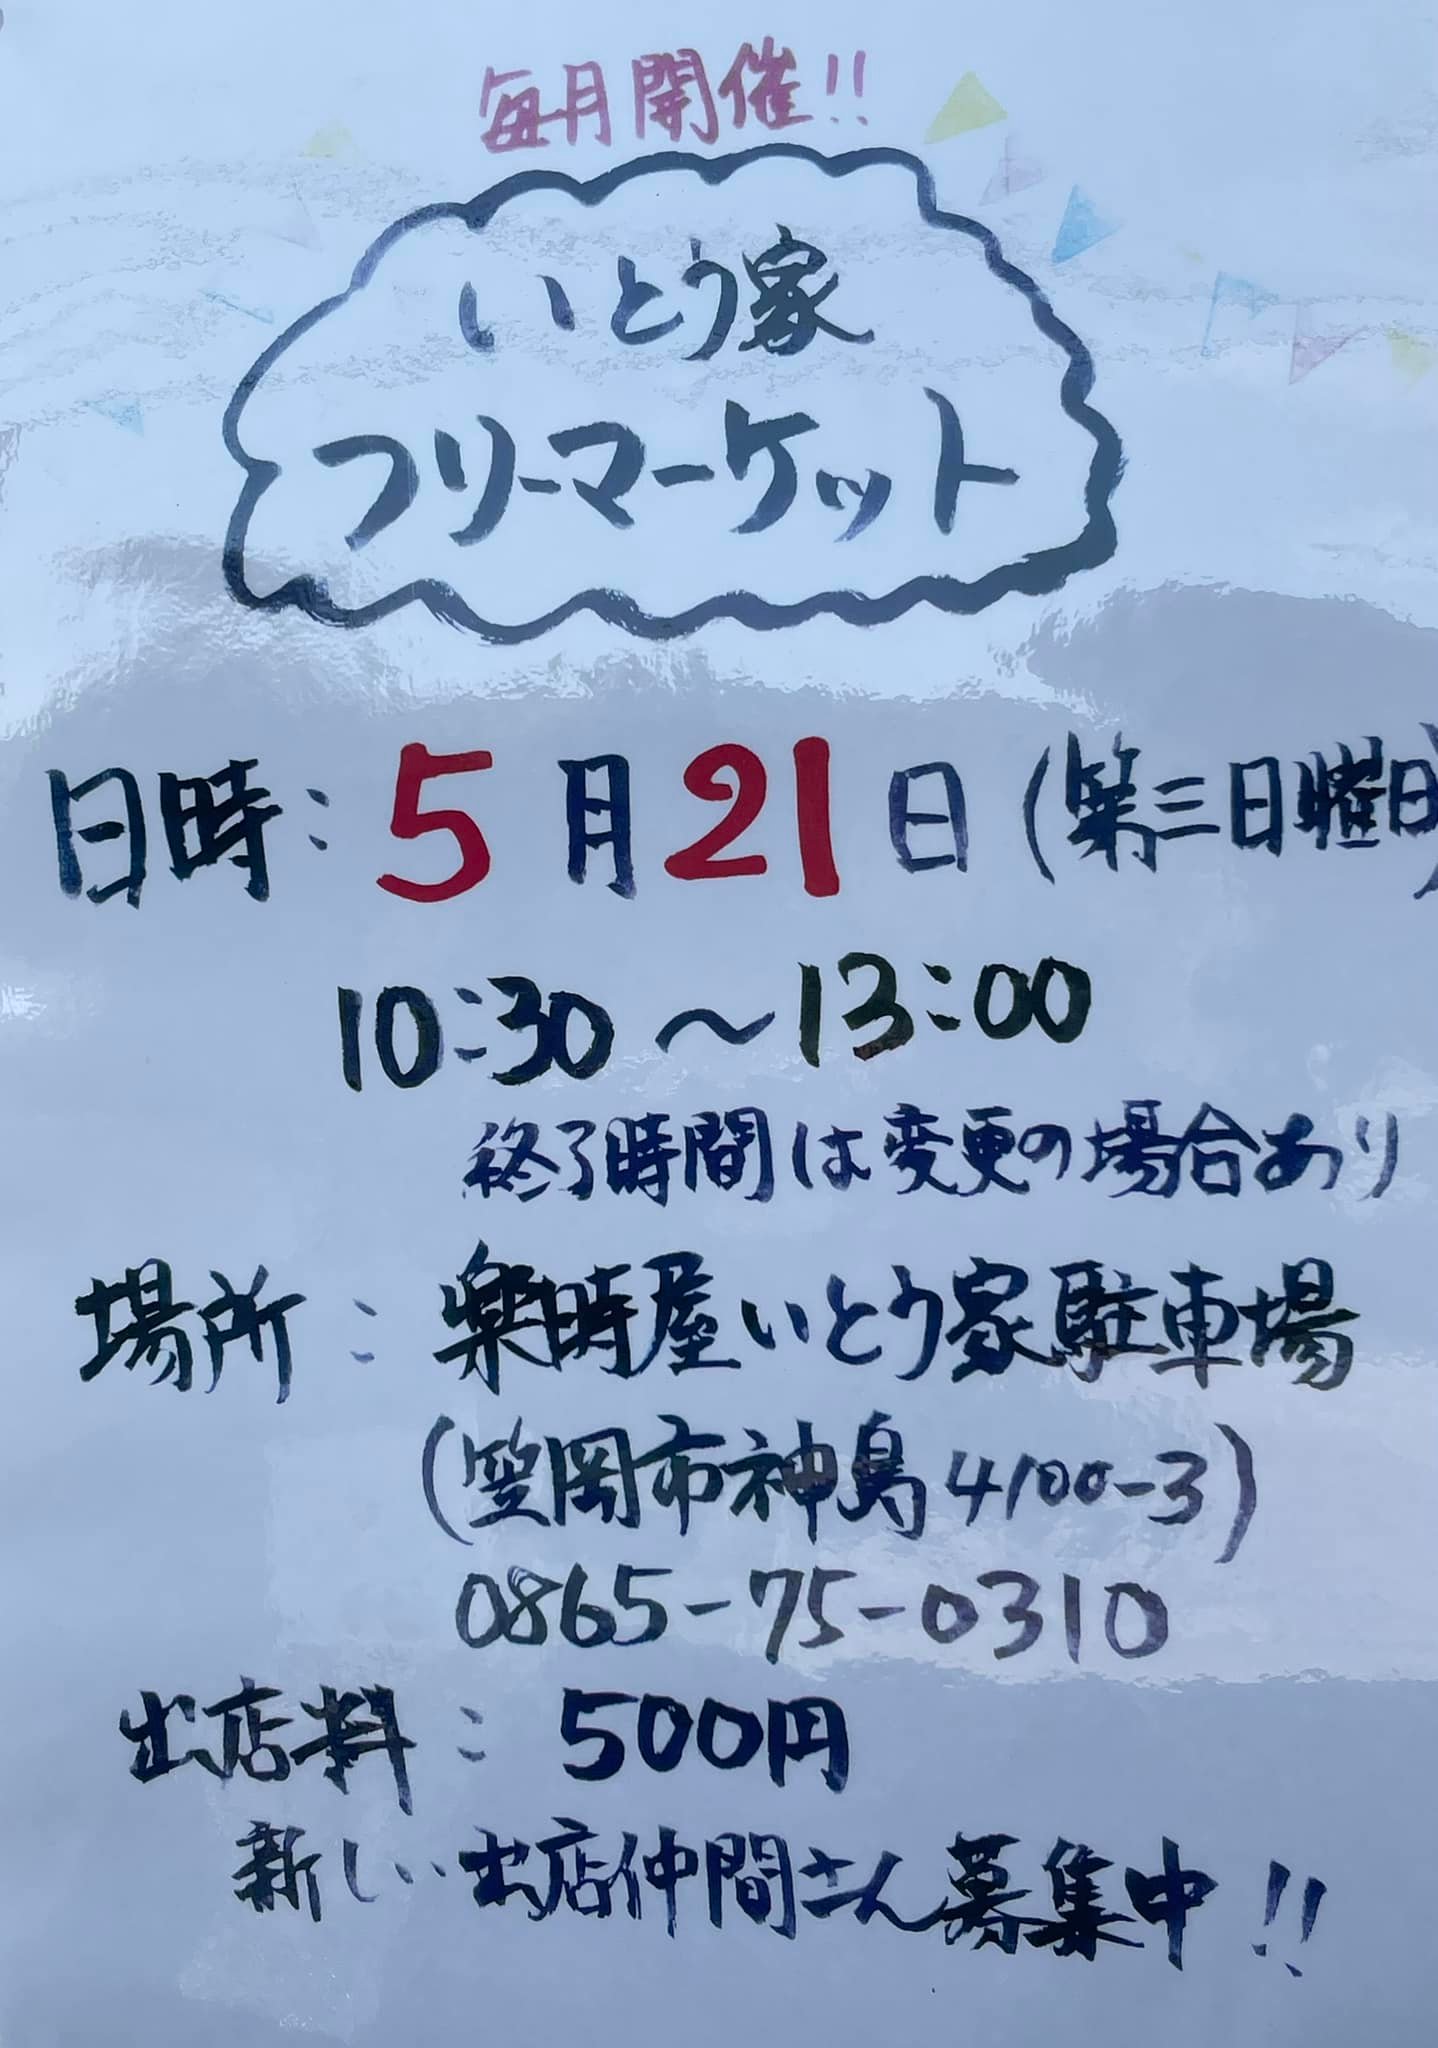 毎月開催!!
いとう家
フリーマーケット
日時:5月21日(第三日曜日)
10:30〜13:00
終了時間は変更の場合あり
場所:楽時屋いとう家駐車場
(笠岡市神島4100-3)
0865-75-0310
出店料:500円
新しい出店仲間さん募集中!!